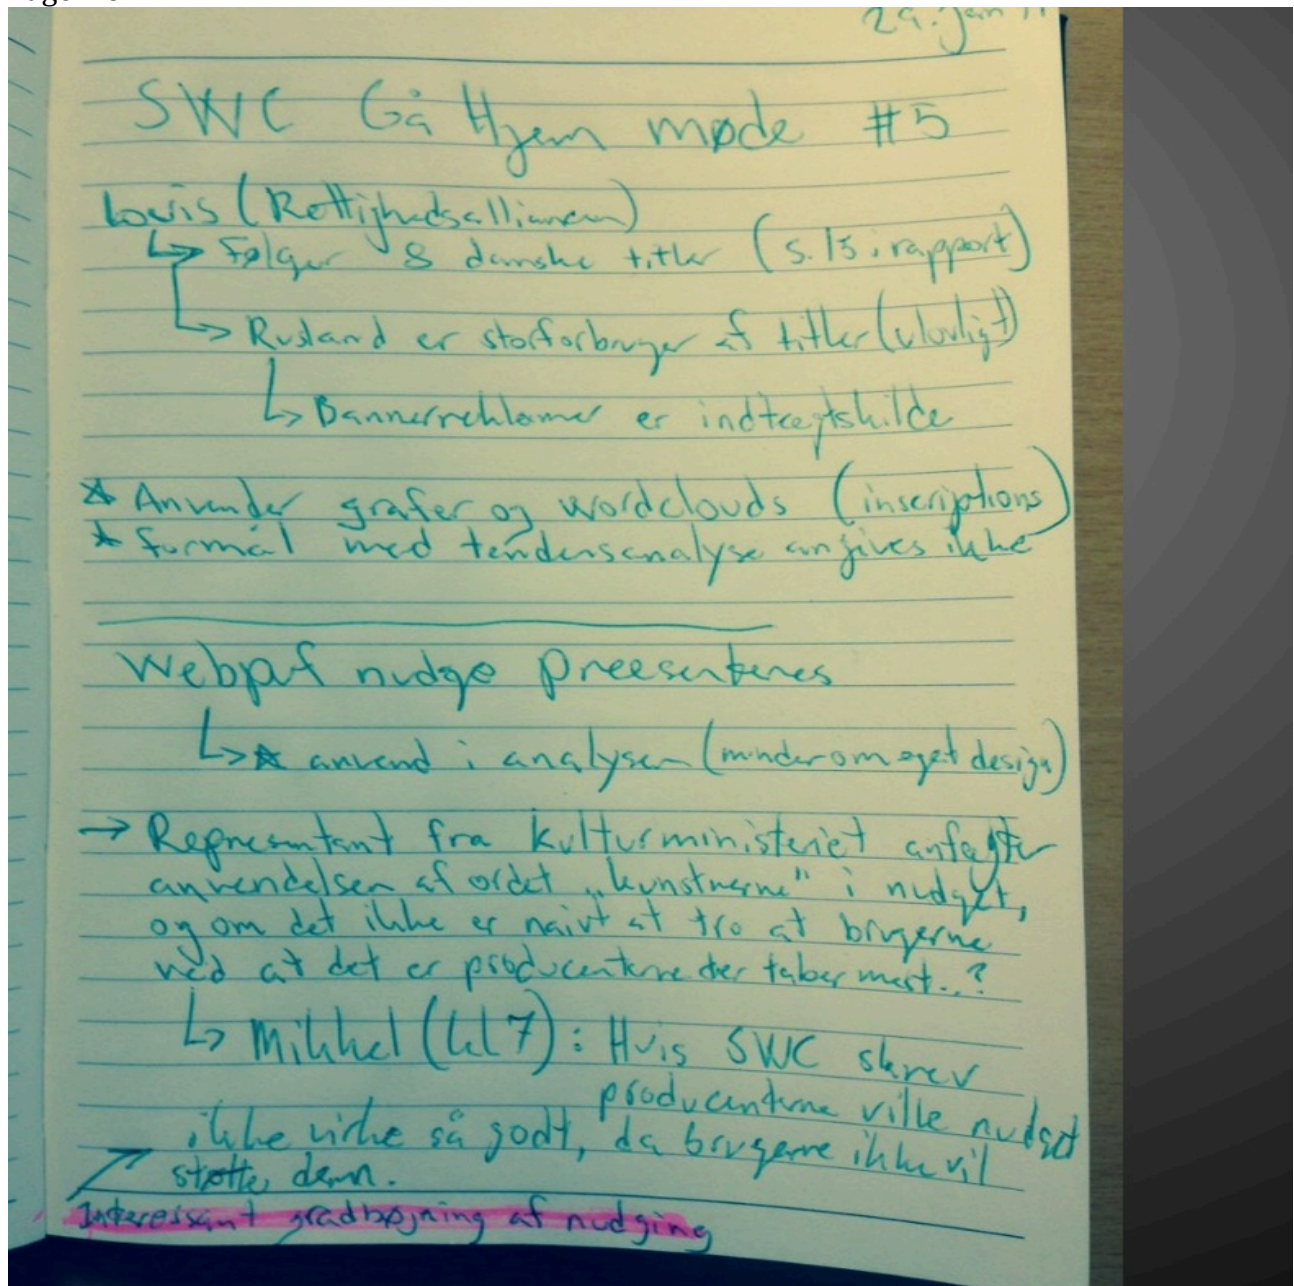 29. jan
SWC Gå Hjem møde #5
Louis (Rettighedsalliancen)
↳ Følger 8 danske titler (s. 15 i rapport)
↳ Rusland er storforbruger af titler (ulovligt)
↳ Bannerreklamer er indtægtskilde
* Anvender grafer og wordclouds (inscriptions)
* formål med tendensanalyse angives ikke
Webpuf nudge præsenteres
↳ * anvend i analysen (minder om eget design)
→ Repræsentant fra kulturministeriet anfægter
anvendelsen af ordet „kunstnerne" i nudget,
og om det ikke er naivt at tro at brugerne
ved at det er producenterne der taber mest..?
↳ Mikkel (kl7): Hvis SWC skrev
producenterne ville nudget
ikke virke så godt, da brugerne ikke vil
støtte dem.
Interessant gradbøjning af nudging